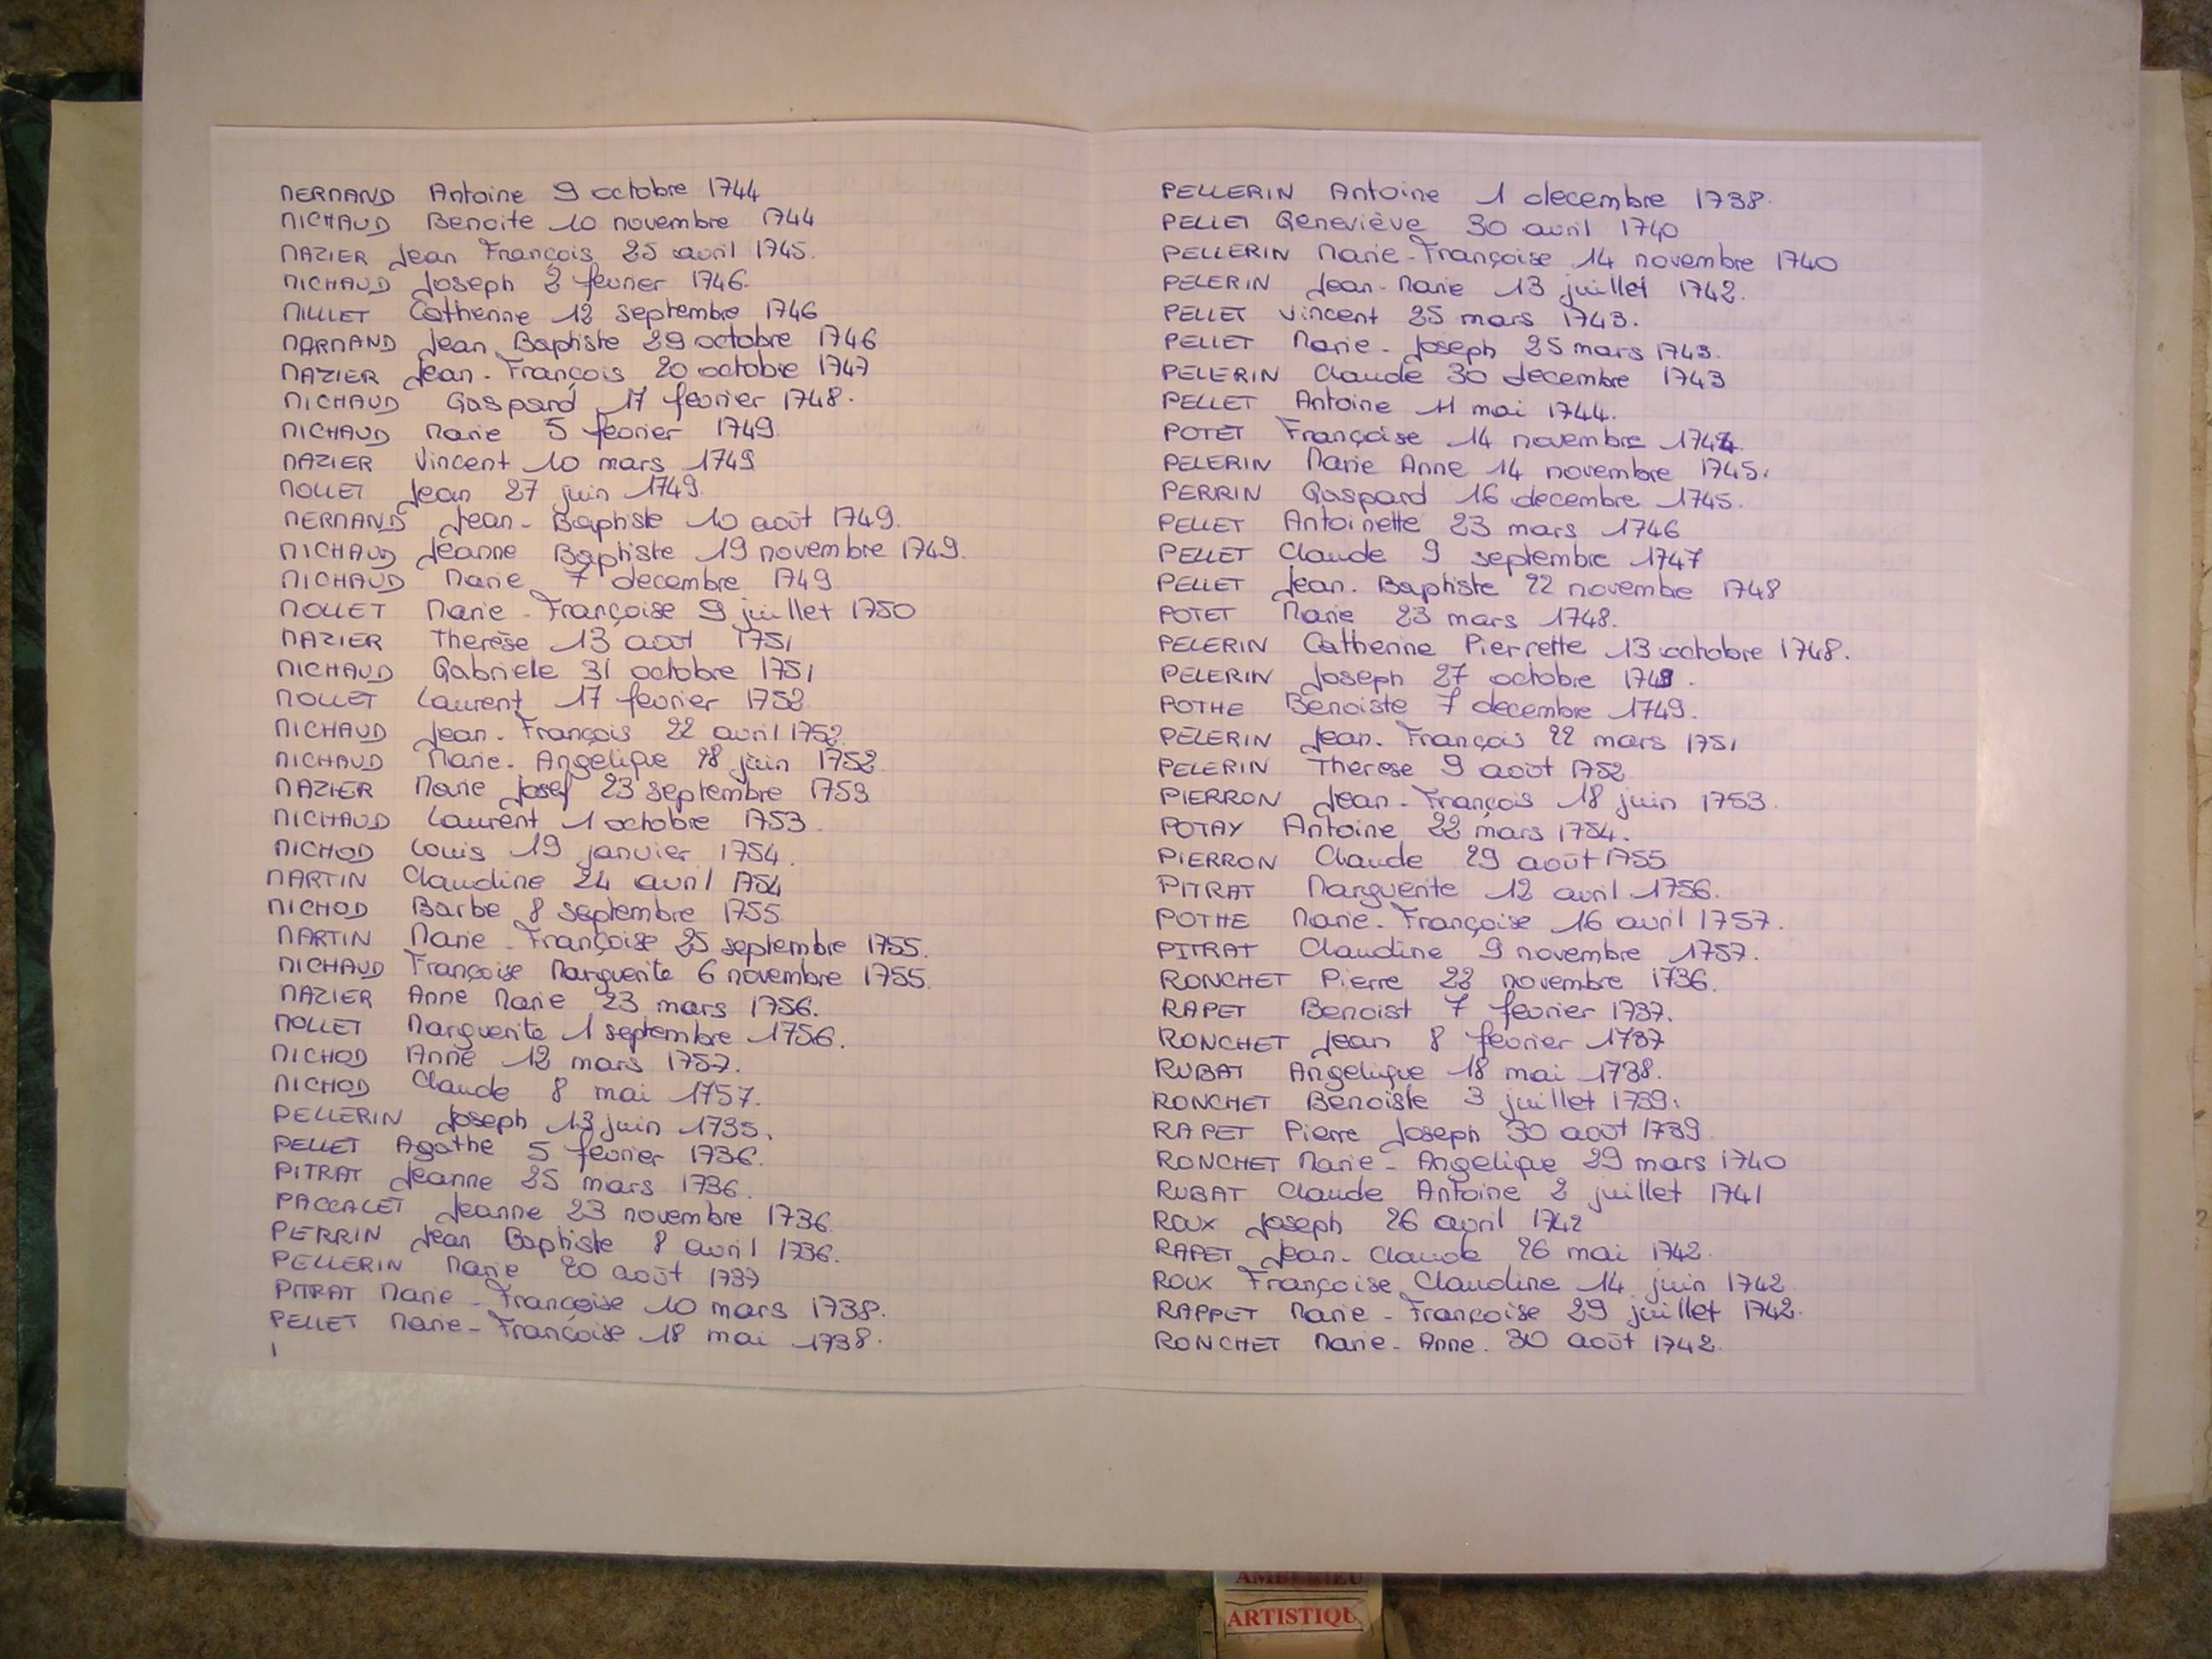 MERMAND Antoine 9 octobre 1744
MICHAUD Benoite 10 novembre 1744
MAZIER Jean François 25 avril 1745.
MICHAUD Joseph 2 fevrier 1746.
MILLET Catherine 12 septembre 1746
MARMAND Jean Baptiste 29 octobre 1746
MAZIER Jean-François 20 octobre 1747
MICHAUD Gaspard 17 fevrier 1748.
MICHAUD Marie 5 fevrier 1749.
MAZIER Vincent 10 mars 1749
MOLLET Jean 27 juin 1749.
MERMAND Jean-Baptiste 10 août 1749.
MICHAUD Jeanne Baptiste 19 novembre 1749.
MICHAUD Marie 7 decembre 1749
MOLLET Marie-Françoise 9 juillet 1750
MAZIER Therèse 13 août 1751
MICHAUD Gabriele 31 octobre 1751
MOLLET Laurent 17 fevrier 1752
MICHAUD Jean-François 22 avril 1752
MICHAUD Marie-Angelique 28 juin 1752
MAZIER Marie Josef 23 septembre 1753
MICHAUD Laurent 1 octobre 1753.
MICHOD Louis 19 janvier 1754.
MARTIN Claudine 24 avril 1754
MICHOD Barbe 8 septembre 1755
MARTIN Marie-Françoise 25 septembre 1755.
MICHAUD Françoise Marguerite 6 novembre 1755.
MAZIER Anne Marie 23 mars 1756.
MOLLET Marguerite 1 septembre 1756.
MICHOD Anne 12 mars 1757.
MICHOD Claude 8 mai 1757.
PELLERIN Joseph 13 juin 1735.
PELLET Agathe 5 fevrier 1736.
PITRAT Jeanne 25 mars 1736.
PACCALET Jeanne 23 novembre 1736.
PERRIN Jean Baptiste 8 avril 1736.
PELLERIN Marie 20 août 1737
PITRAT Marie-Françoise 10 mars 1738.
PELLET Marie-Françoise 18 mai 1738.
PELLERIN Antoine 1 decembre 1738.
PELLET Geneviève 30 avril 1740
PELLERIN Marie-Françoise 14 novembre 1740
PELERIN Jean-Marie 13 juillet 1742.
PELLET Vincent 25 mars 1743.
PELLET Marie-Joseph 25 mars 1743.
PELERIN Claude 30 decembre 1743
PELLET Antoine 11 mai 1744.
POTET Françoise 14 novembre 1744.
PELERIN Marie Anne 14 novembre 1745.
PERRIN Gaspard 16 decembre 1745.
PELLET Antoinette 23 mars 1746
PELLET Claude 9 septembre 1747
PELLET Jean-Baptiste 22 novembe 1748
POTET Marie 23 mars 1748.
PELERIN Catherine Pierrette 13 octobre 1748.
PELERIN Joseph 27 octobre 1749.
POTHE Benoiste 7 decembre 1749.
PELERIN Jean-François 22 mars 1751
PELERIN Therese 9 août 1752
PIERRON Jean-François 18 juin 1753.
POTAY Antoine 22 mars 1754.
PIERRON Claude 29 août 1755
PITRAT Marguerite 12 avril 1756.
POTHE Marie-Françoise 16 avril 1757.
PITRAT Claudine 9 novembre 1757.
RONCHET Pierre 22 novembre 1736.
RAPET Benoist 7 fevrier 1737.
RONCHET Jean 8 fevrier 1737
RUBAT Angelique 18 mai 1738.
RONCHET Benoiste 3 juillet 1739.
RAPET Pierre Joseph 30 août 1739
RONCHET Marie-Angelique 29 mars 1740
RUBAT Claude Antoine 2 juillet 1741
ROUX Joseph 26 avril 1742
RAPET Jean-Claude 26 mai 1742.
ROUX Françoise Claudine 14 juin 1742
RAPPET Marie-Françoise 29 juillet 1742.
RONCHET Marie-Anne. 30 août 1742.
ARTISTIQU